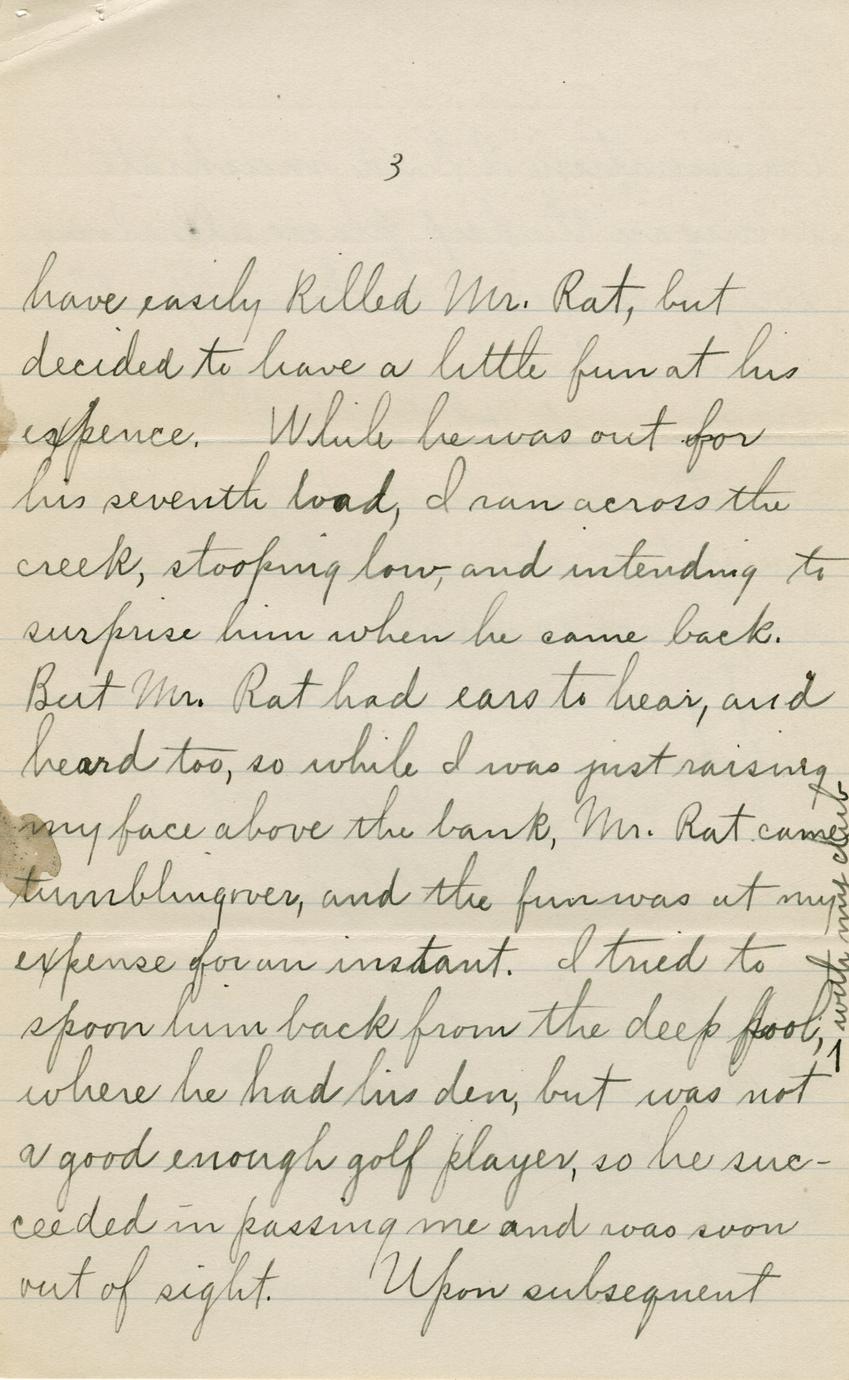 3
have easily killed Mr. Rat, but
decided to have a little fun at his
expence. While he was out for
his seventh load, I ran across the
creek, stooping low, and intending to
surprise him when he came back.
But Mr. Rat had ears to hear, and
heard too, so while I was just raising
my face above the bank, Mr. Rat came
tumbling over, and the fun was at my
expense for an instant. I tried to
spoon him back from the deep pool,
1 with my club
where he had his den, but was not
a good enough golf player, so he suc-
ceeded in passing me and was soon
out of sight. Upon subsequent